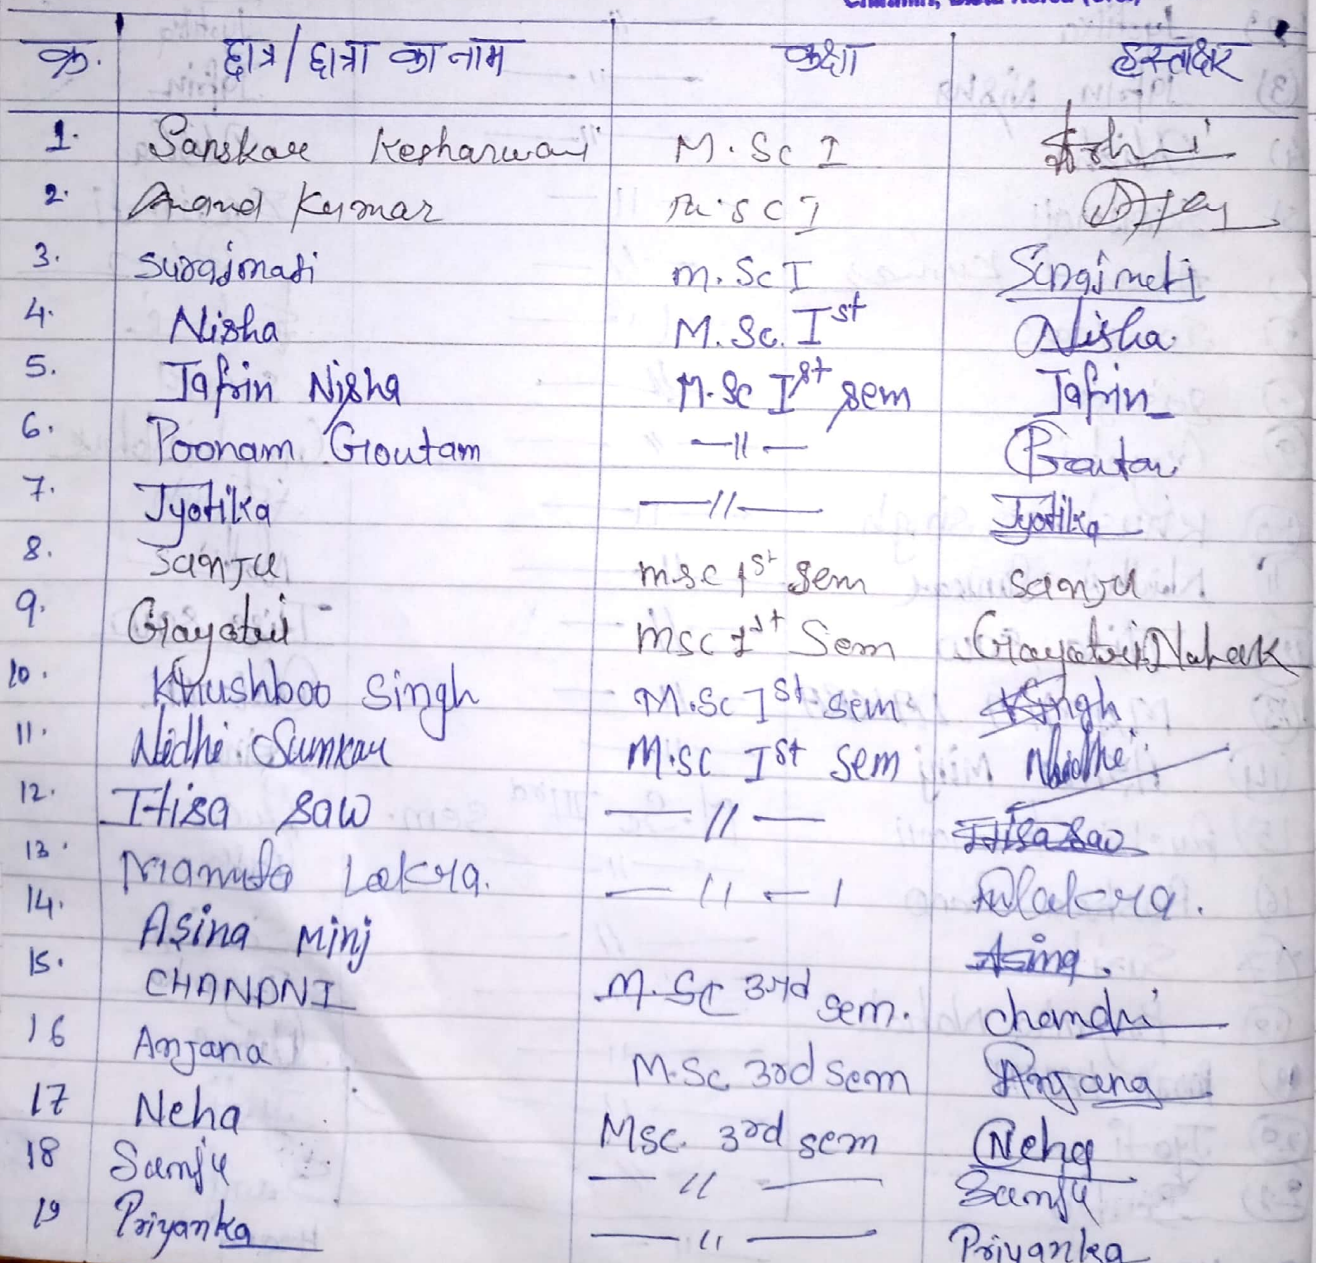 क्र. छात्र/छात्रा का नाम कक्षा हस्ताक्षर
1. Sanskar Kesharwani M.Sc I
2. Anand Kumar M.Sc I
3. Surajmati M.Sc I Surajmati
4. Nisha M.Sc. Ist Nisha
5. Jafrin Nisha M.Sc Ist sem Jafrin
6. Poonam Goutam —〃—
7. Jyotika —〃— Jyotika
8. Sanju msc 1st sem Sanju
9. Gayatri msc 1st Sem Gayatri Nahak
10. Khushboo Singh M.Sc Ist sem KSingh
11. Nidhi M.Sc Ist sem Nidhi
12. Itisa saw —〃— Itisa Saw
13. Lakra. —〃—
14. Asina Minj Asina.
15. CHANDNI M.Sc 3rd sem. Chandni
16 Anjana M.Sc 3rd sem Anjana
17 Neha Msc. 3rd sem Neha
18 Sanju —〃— Sanju
19 Priyanka —〃— Priyanka